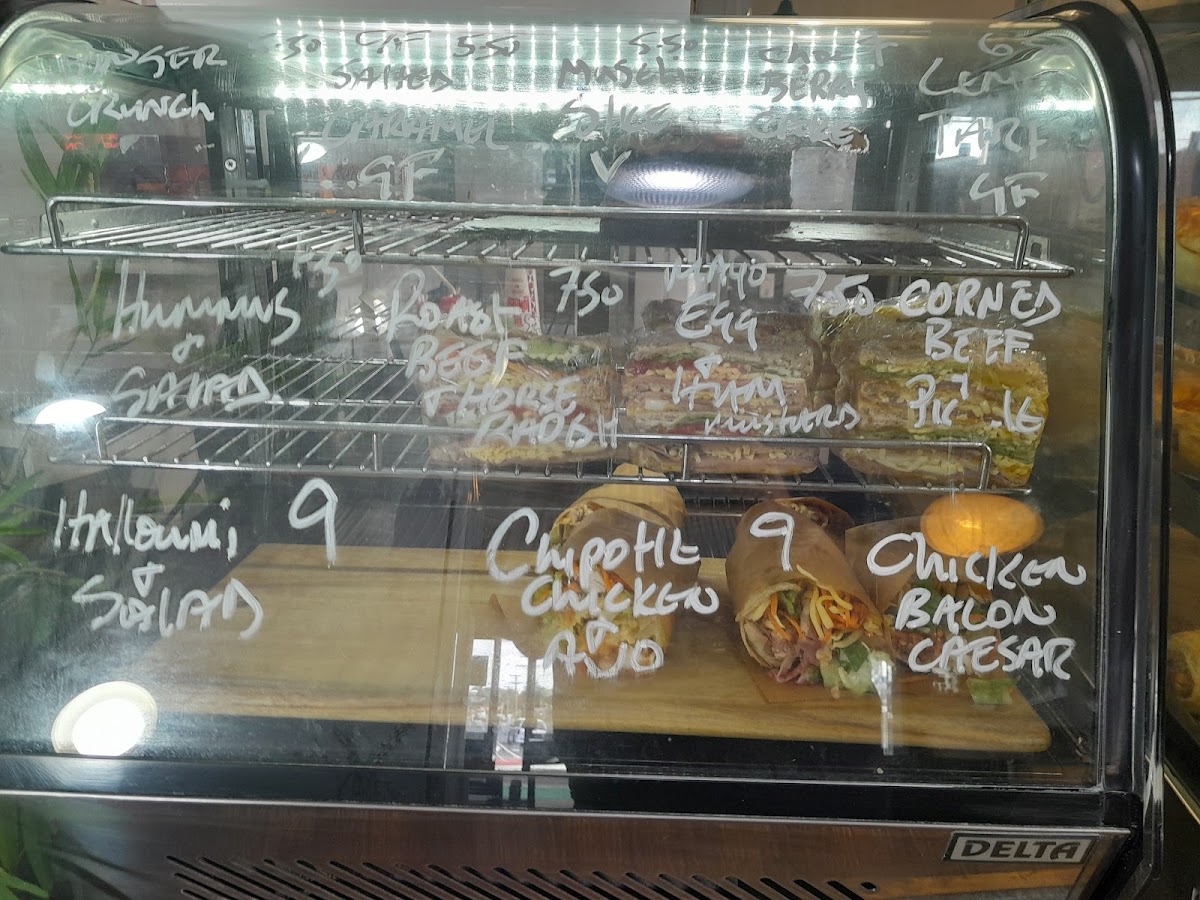 GINGER CRUNCH
5.50
GF SALTED CARAMEL GF
5.50
MUSELI SLICE V
5.50
BERRY CAKE
6
LEMON TART GF
HUMMUS & SALAD
7.50
ROAST BEEF & HORSE RADISH
750
MAYO EGG & HAM MUSTARD
750
CORNED BEEF PICKLE
HAlloumi & SALAD
9
CHIPOTLE CHICKEN & AVO
9
CHICKEN BACON CAESAR
DELTA